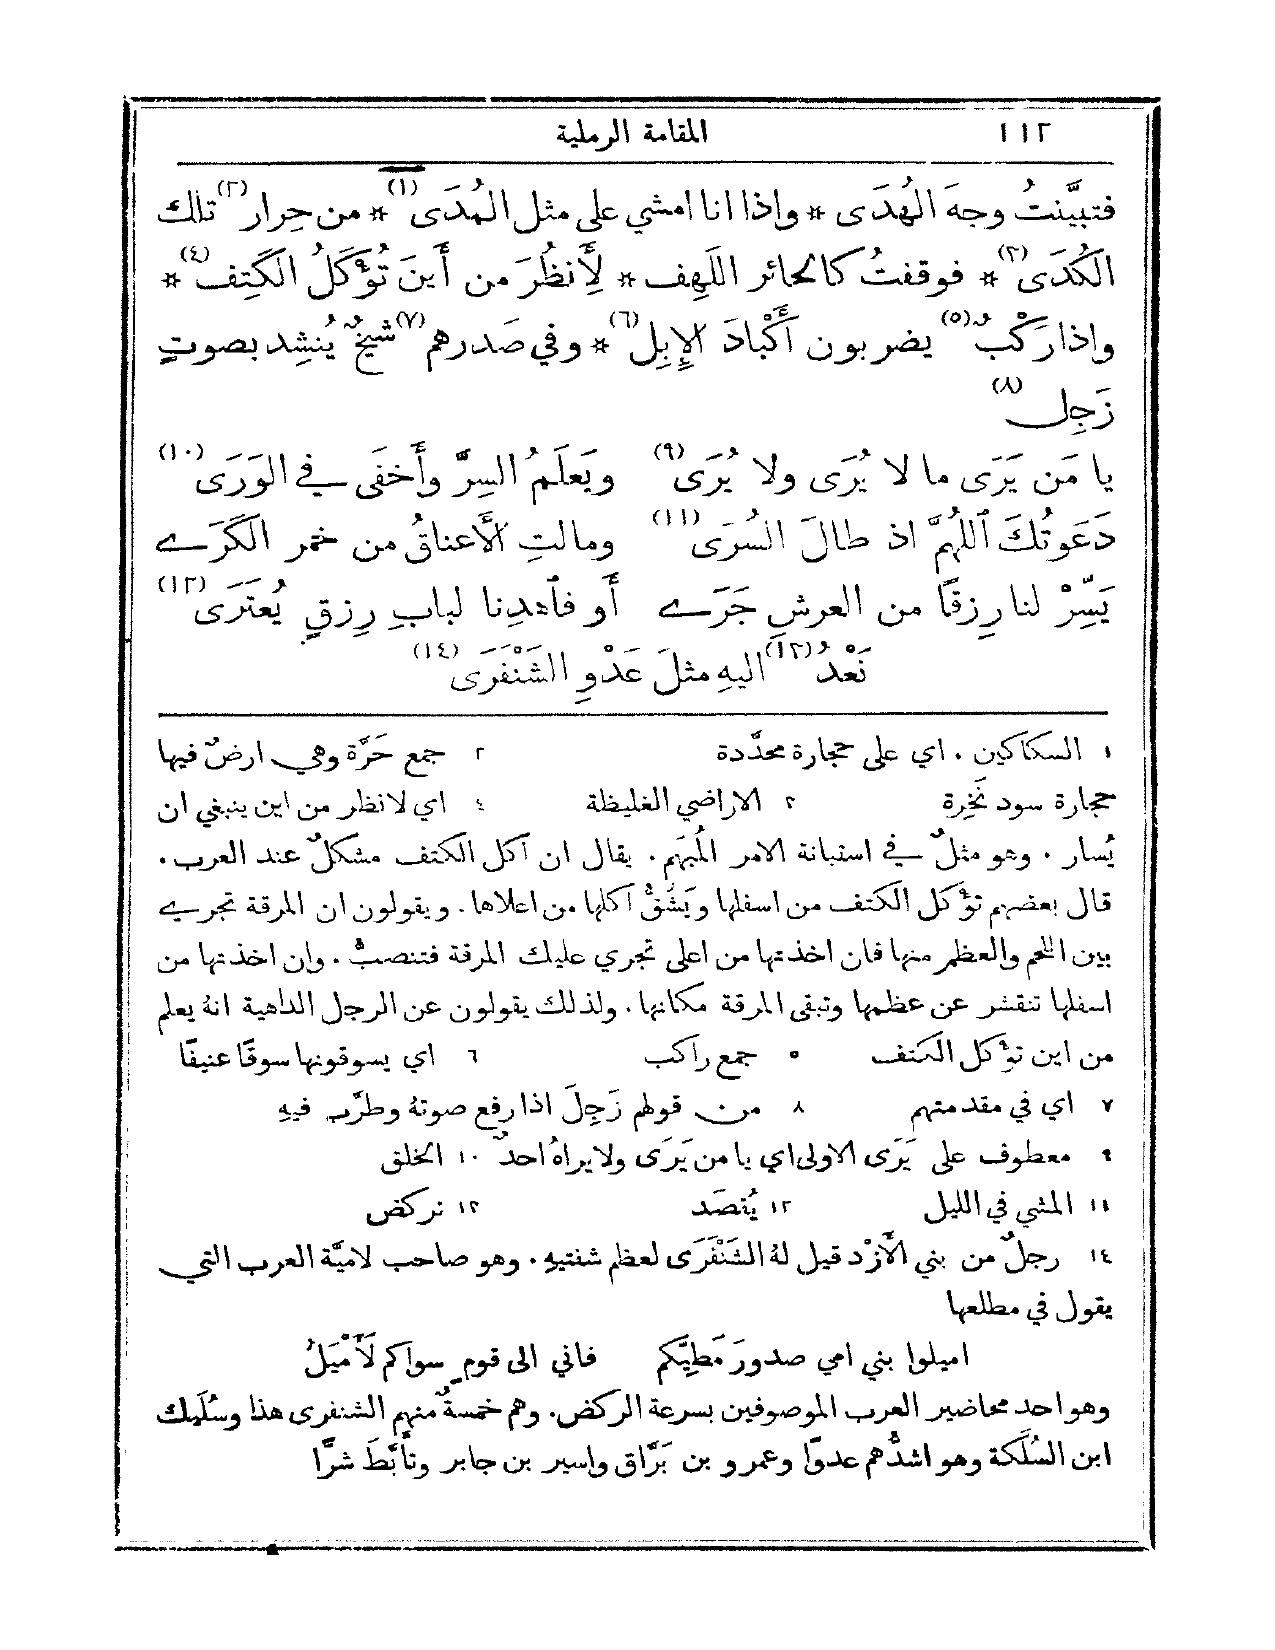 ١١٢ المقامة الرملية
فتبيَّنتُ وجهَ الهُدَى * واذا انا امشي على مثل المُدَى(١) * من حِرار(٢) تلك
الكُدَى(٣) * فوقفتُ كالحائر اللَهِف * لِأَنظُرَ من أَينَ تُؤْكَلُ الكَتِف(٤) *
واذا رَكْبٌ(٥) يضربون أَكْبادَ الإِبِل(٦) * وفي صَدرهم(٧) شيخٌ يُنشِد بصوتٍ
زَجِل(٨)
يا مَن يَرَى ما لا يُرَى ولا يُرَى(٩) ويَعلَمُ السِرَّ وأَخفَى في الوَرَى(١٠)
دَعَوتُكَ ٱللهُمَّ اذ طالَ السُرَى(١١) ومالتِ الأَعناقُ من خمر الكَرَى
يَسِّرْ لنا رِزقًا من العرشِ جَرَى أَو فٱهدِنا لبابِ رِزقٍ يُعتَرَى(١٢)
نَعْدُ(١٣) اليهِ مثلَ عَدْوِ الشَنْفَرَى(١٤)
١ السكاكين. اي على حجارة محدَّدة ٢ جمع حَرَّة وهي ارضٌ فيها
حجارة سود نَخِرة ٣ الاراضي الغليظة ٤ اي لانظر من اين ينبغي ان
يُسار. وهو مثلٌ في استبانة الامر المُبهَم. يقال ان آكل الكتف مشكلٌ عند العرب.
قال بعضهم تؤكل الكتف من اسفلها ويَشُقُّ آكلها من اعلاها. ويقولون ان المرقة تجري
بين اللحم والعظم منها فان اخذتها من اعلى تجري عليك المرقة فتنصبُّ. وان اخذتها من
اسفلها تنقشر عن عظمها وتبقى المرقة مكانها. ولذلك يقولون عن الرجل الداهية انهُ يعلم
من اين تؤكل الكتف ٥ جمع راكب ٦ اي يسوقونها سوقًا عنيفًا
٧ اي في مقدمتهم ٨ من قولهم زَجِلَ اذا رفع صوتهُ وطرَّب فيهِ
٩ معطوف على يَرَى الاولى اي يا من يَرَى ولا يراهُ احدٌ ١٠ الخلق
١١ المشي في الليل ١٢ يُقصَد ١٣ نركض
١٤ رجلٌ من بني الأَزْد قيل لهُ الشَنْفَرَى لعظم شفتيهِ. وهو صاحب لاميَّة العرب التي
يقول في مطلعها
اميلوا بني امي صدورَ مَطِيِّكم فاني الى قومٍ سواكم لَأَمْيَلُ
وهو احد محاضير العرب الموصوفين بسرعة الركض. وهم خمسةٌ منهم الشنفرى هذا وسُلَيك
ابن السُلَكة وهو اشدُّهم عدوًا وعمرو بن بَرَّاق واسير بن جابر وتأَبَّطَ شرًّا